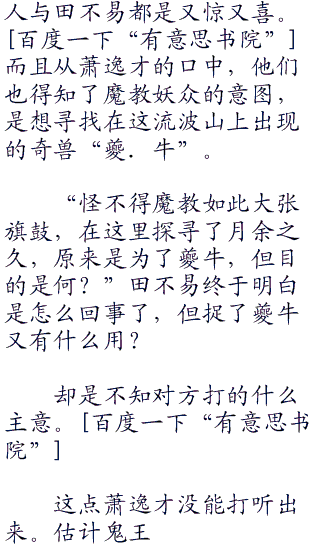 人与田不易都是又惊又喜。
[百度一下“有意思书院”]
而且从萧逸才的口中，他们
也得知了魔教妖众的意图，
是想寻找在这流波山上出现
的奇兽“夔．牛”。
“怪不得魔教如此大张
旗鼓，在这里探寻了月余之
久，原来是为了夔牛，但目
的是何？”田不易终于明白
是怎么回事了，但捉了夔牛
又有什么用？
却是不知对方打的什么
主意。[百度一下“有意思书
院”]
这点萧逸才没能打听出
来。估计鬼王